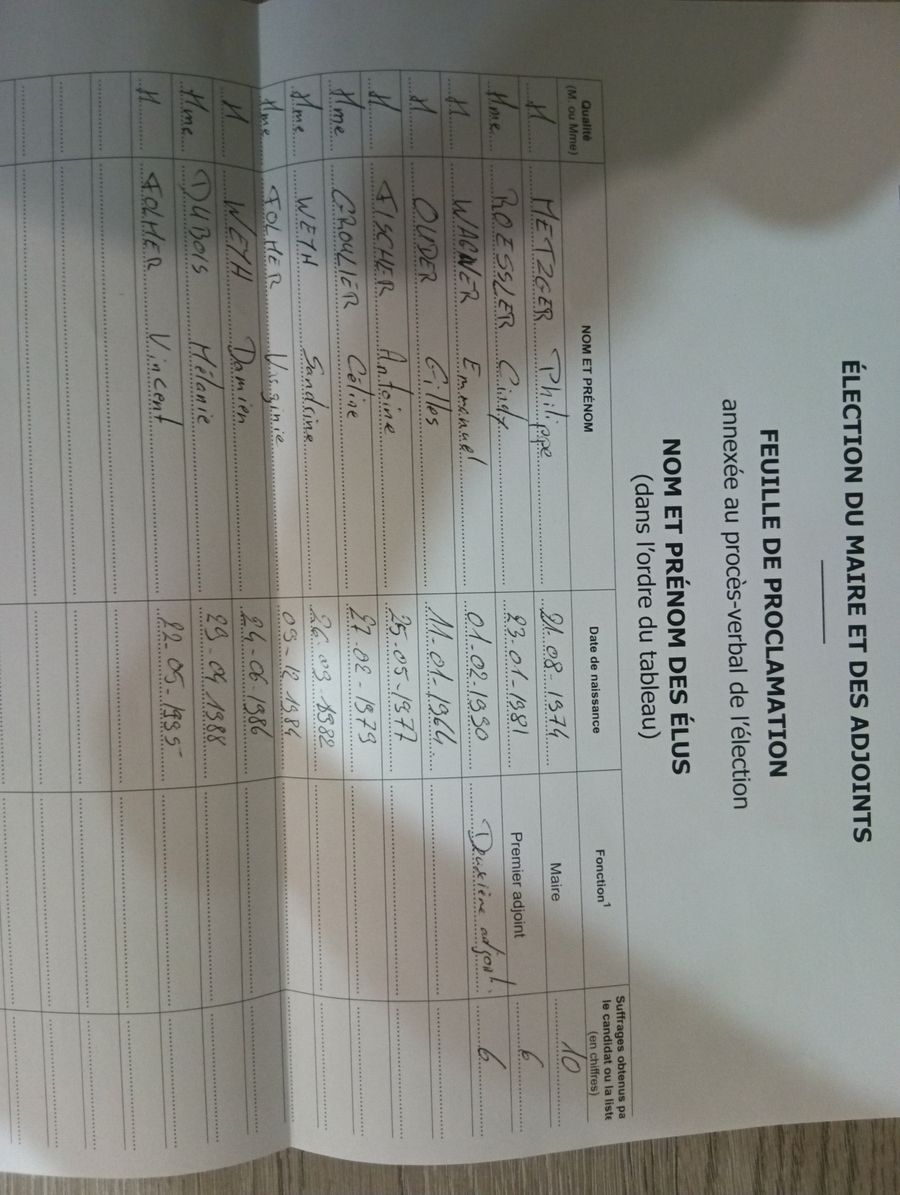 ÉLECTION DU MAIRE ET DES ADJOINTS
FEUILLE DE PROCLAMATION
annexée au procès-verbal de l'élection
NOM ET PRÉNOM DES ÉLUS
(dans l'ordre du tableau)
Qualité (M. ou Mme) NOM ET PRÉNOM Date de naissance Fonction1 Suffrages obtenus pa le candidat ou la liste (en chiffres)
M METZGER Philippe 21-08-1974 Maire 10
Mme ROESSLER Cindy 23-01-1981 Premier adjoint 6
M WAGNER Emmanuel 01-02-1990 Deuxième adjoint. 6
M OUDER Gilles 11-01-1964
M FISCHER Antoine 25-05-1977
Mme GROULIER Céline 27-02-1979
Mme WEYH Sandrine 26-09-1982
Mme FOLMER Virginie 09-12 1984
M WEYH Damien 24-06-1986
Mme DUBOIS Mélanie 29-04 1988
M FOLMER Vincent 22-05-1995-